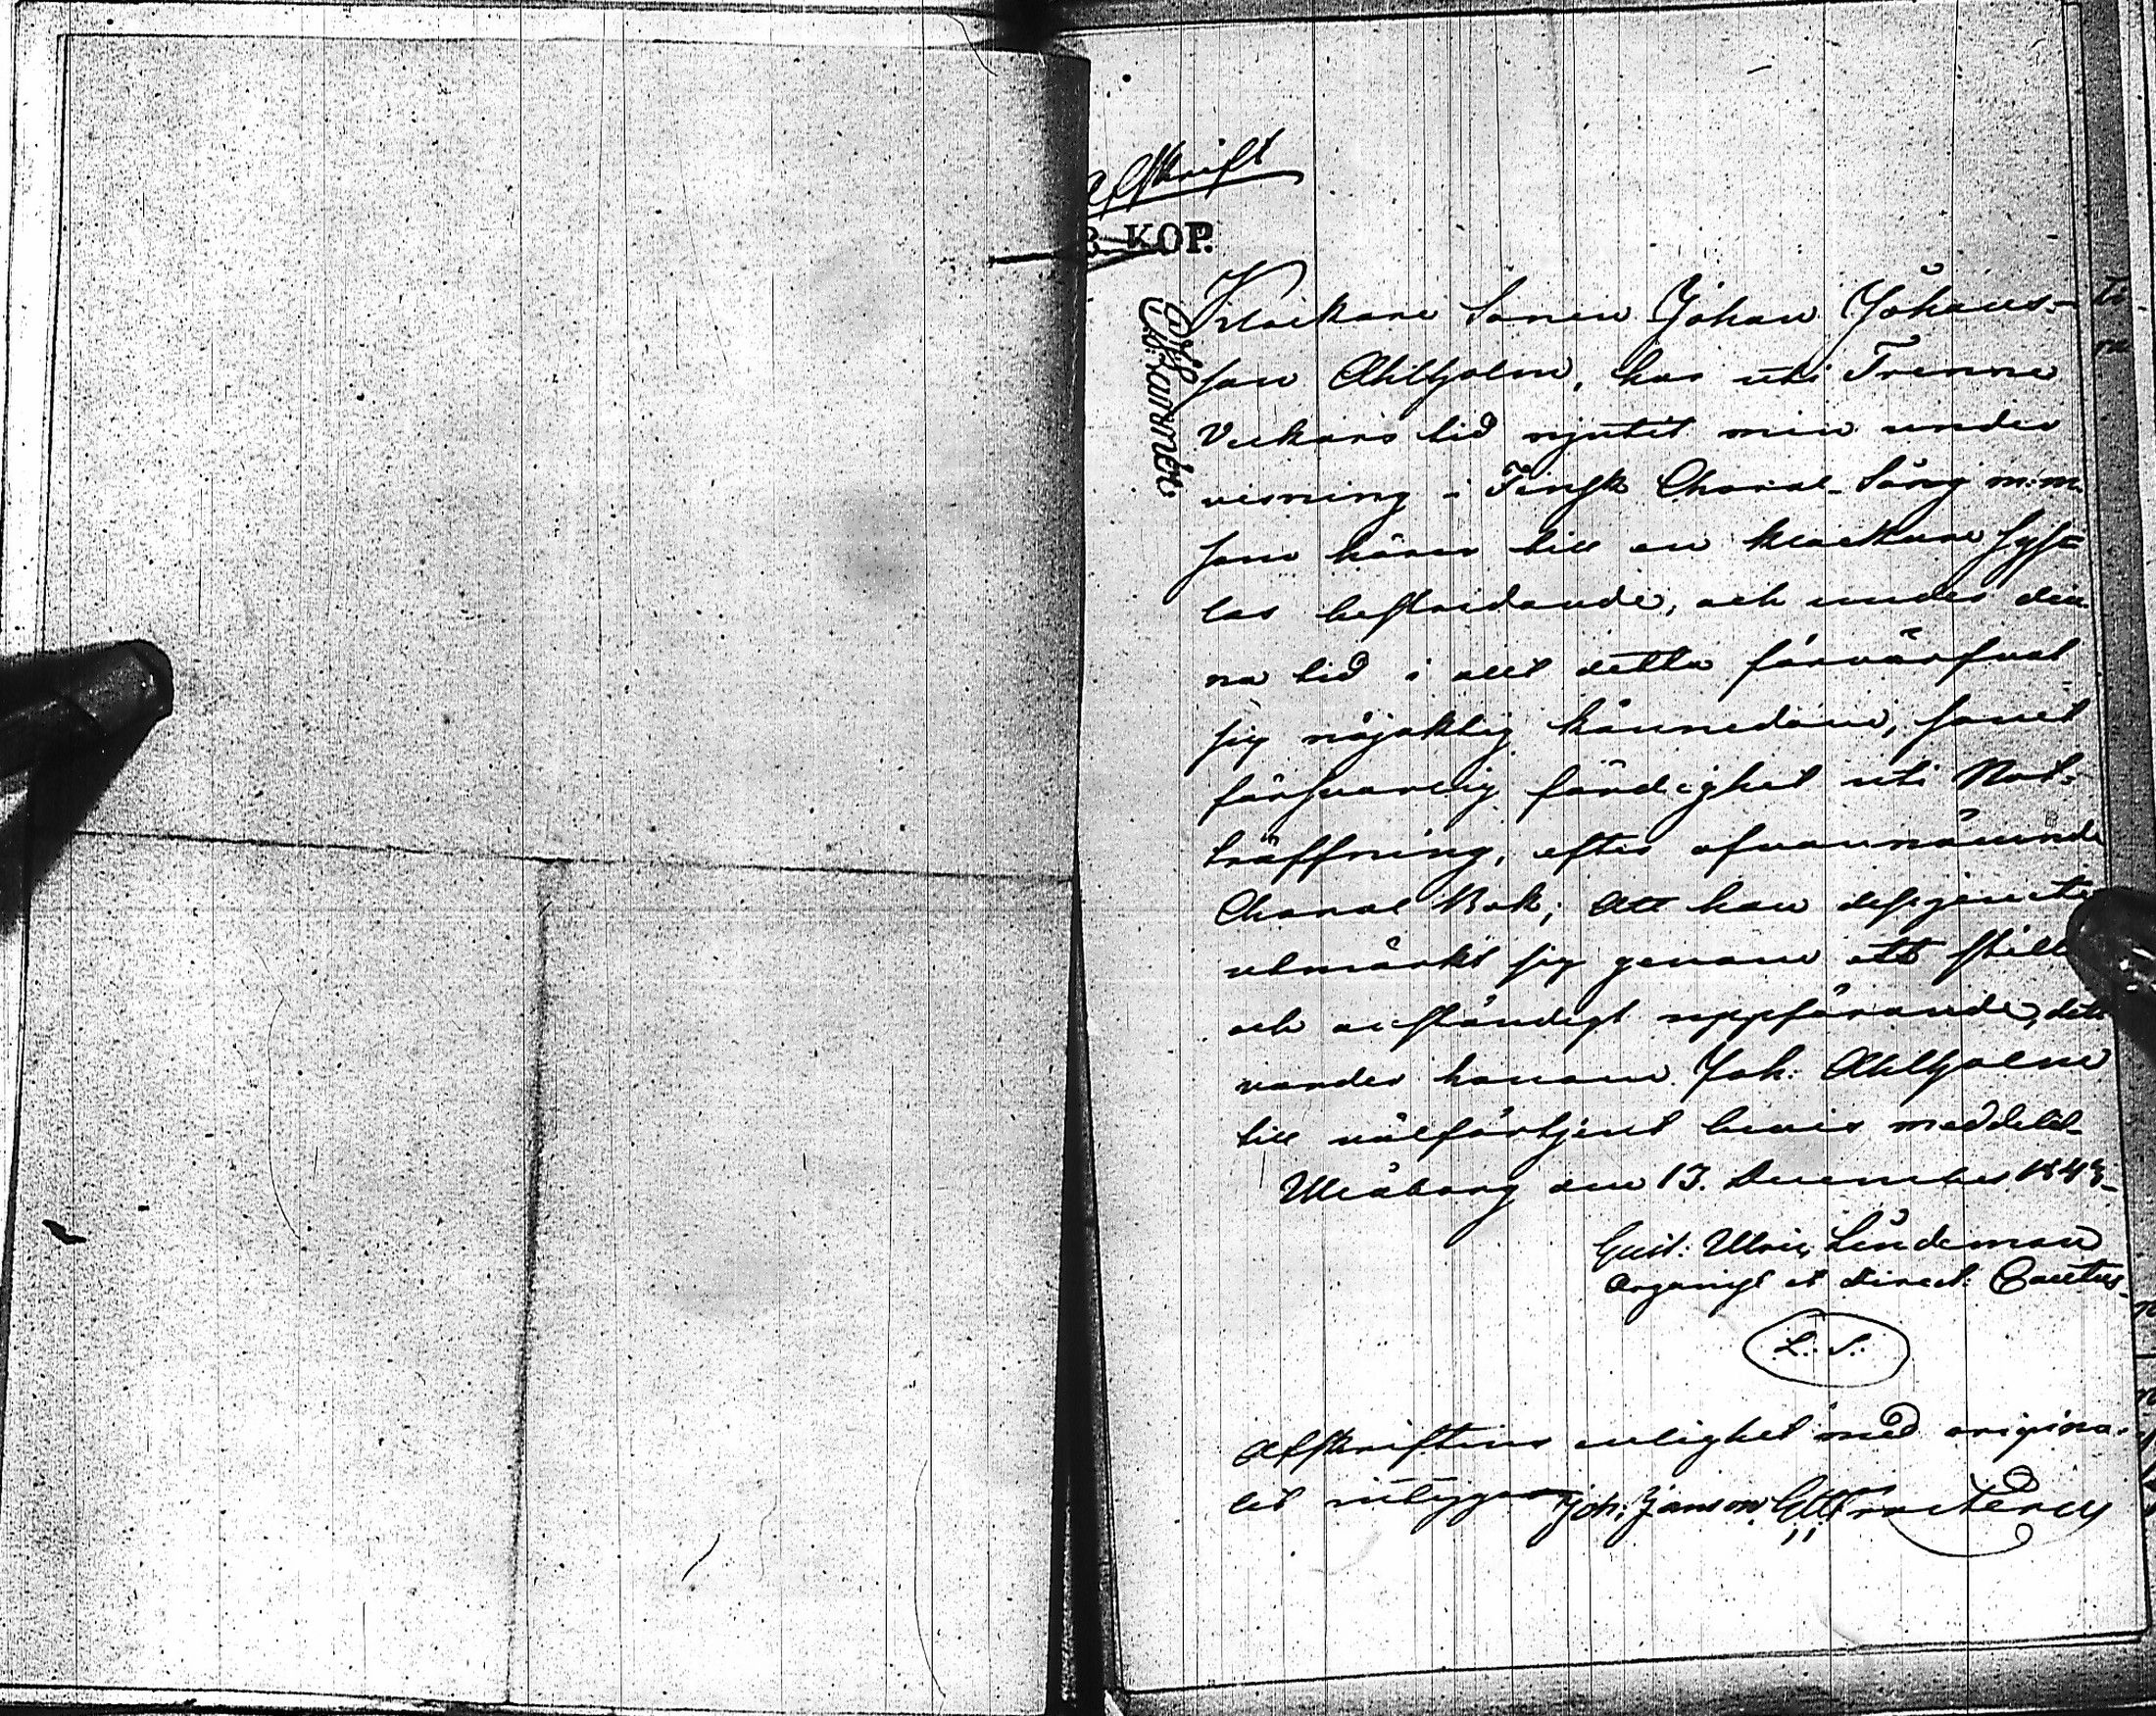 Afskrift
KOP.
Klockare Sonen Johan Johans-
son Ahlholm, har uti Trenne
Veckors tid njutit min under
visning i Finsk Choral-Sång m:m.
som hörer till en klockare syss-
las bestridande, och under den-
na tid i allt detta förvärfvat
sig nöjaktig kännedom, samt
försvarlig färdighet uti Not-
träffning, efter ofvannämnde
Choral Bok; Att han dessjemte
utmärkt sig genom ett stilla
och anständigt uppförande, det
varder honom Joh: Ahlholm
till välförtjent bevis meddelat-
Uleåborg den 13. December 1843-
Gust: Ulric Lindeman
Organist et Direct: Cantus-
L. S.
Afskriftens enlighet med origina-
let intygar Joh: Janson